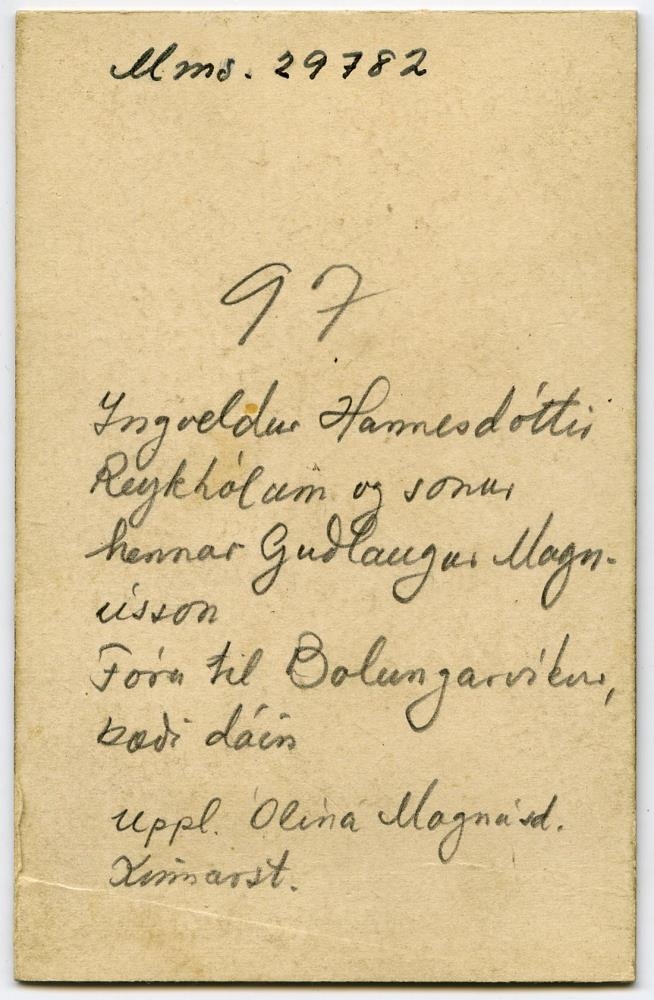 Mms. 29782
97
Ingveldur Hannesdóttir
Reykhólum og sonur
hennar Guðlaugur Magn-
ússon
Fóru til Bolungarvíkur,
bæði dáin
uppl. Ólína Magnúsd.
Kinnarst.